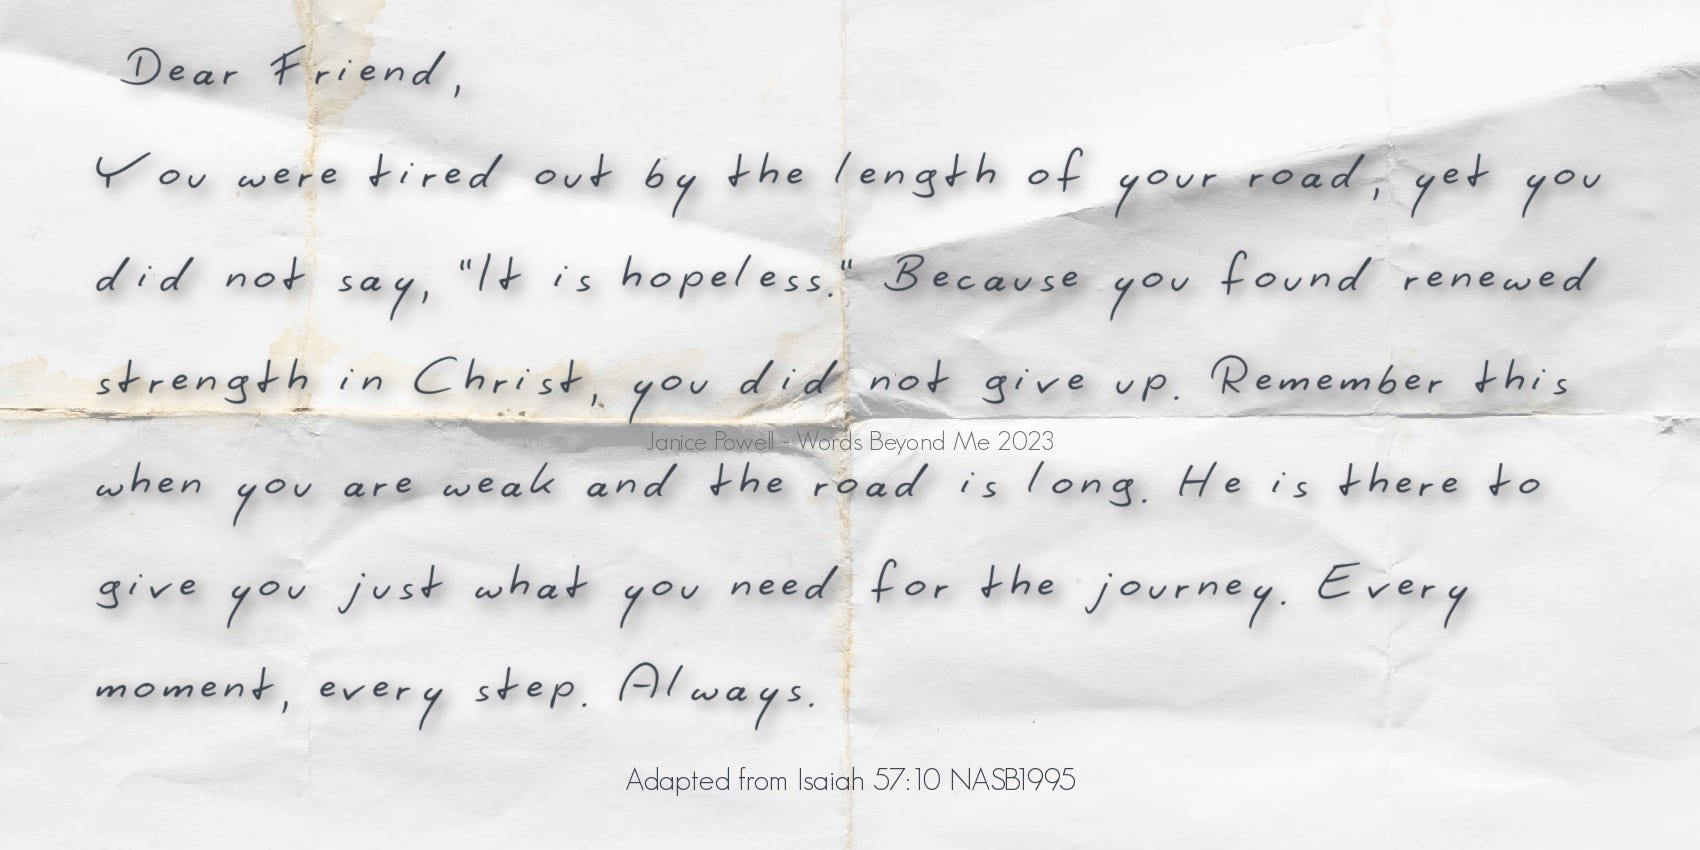 Dear Friend,
You were tired out by the length of your road, yet you
did not say, "It is hopeless." Because you found renewed
strength in Christ, you did not give up. Remember this
Janice Powell - Words Beyond Me 2023
when you are weak and the road is long. He is there to
give you just what you need for the journey. Every
moment, every step. Always.
Adapted from Isaiah 57:10 NASB1995